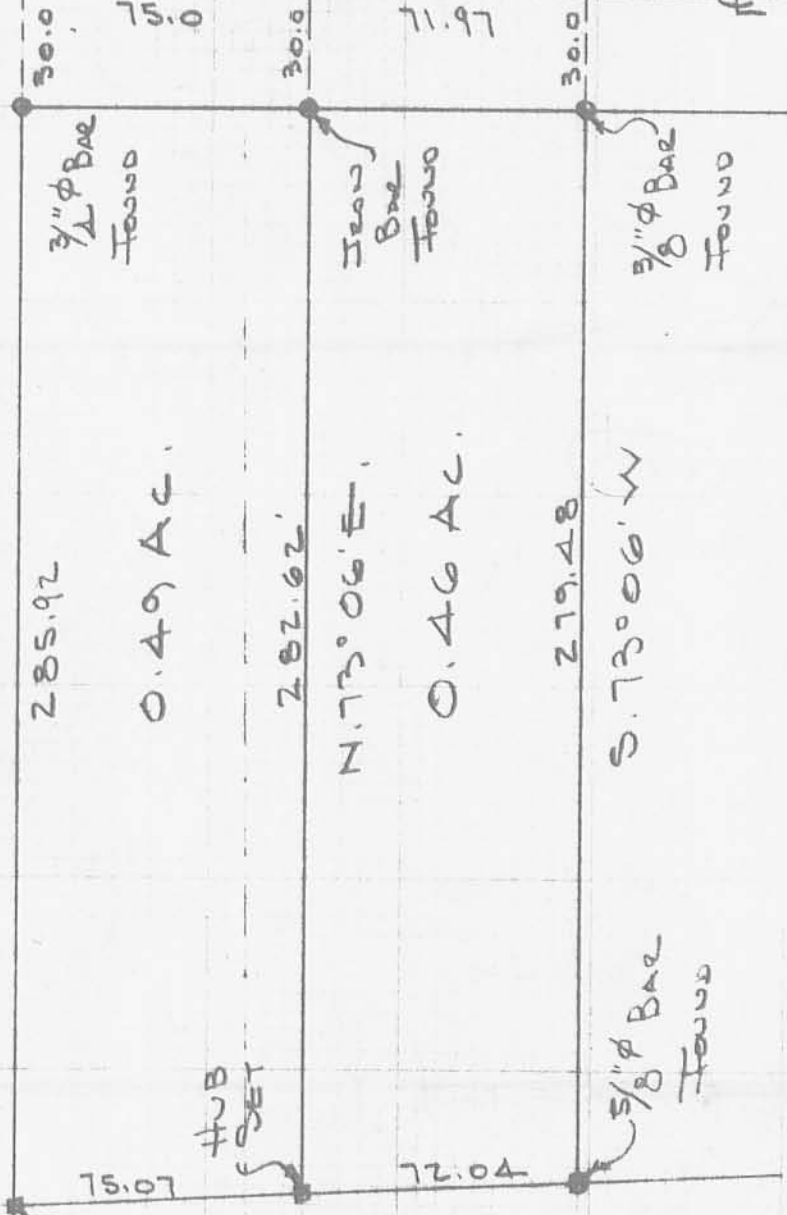 30.0
75.0
30.0
71.97
30.0
3/4"ϕ BAR
FOUND
IRON
BAR
FOUND
5/8"ϕ BAR
FOUND
285.92
0.49 AC.
282.62'
N.73°06'E.
0.46 AC.
279.48
S.73°06'W
HUB
SET
75.07
72.04
5/8"ϕ BAR
FOUND